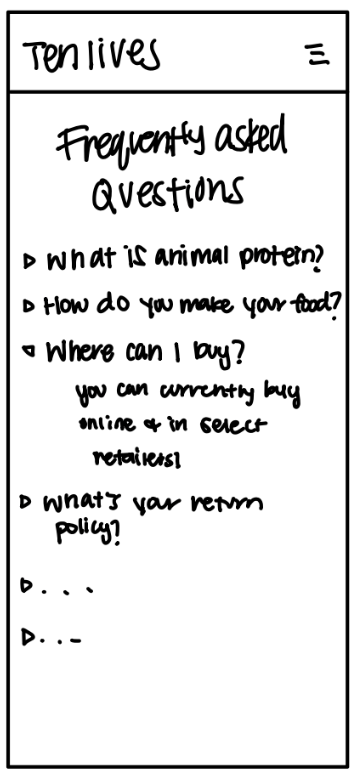 Tenlives
Frequently asked
Questions
What is animal protein?
How do you make your food?
Where can I buy?
you can currently buy
online & in select
retailers!
What's your return
policy?
...
...